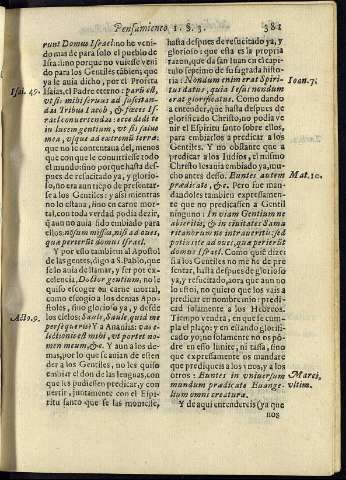 Pensamiento 1. §. 3. 381
runt Domus Israel: no he veni-
do mas de para solo el pueblo de
Israel: no porque no viniesse veni
do para los Gentiles tãbien; que
ya le auia dicho, por el Profeta
Isai. 49.
Isaias, el Padre eterno: parũ est,
vt sis mihi seruus ad suscitan-
das Tribus Iacob, & fæces Is-
rael conuertendas: ecce dedi te
in lucem gentium, vt sis salus
mea, vsque ad extremũ terræ.
que no le contentaua del, menos
que con que le conuirtiesse todo
el mundo: sino porque hasta des-
pues de resucitado ya, y glorio-
so, no era aun tiempo de presentar
los Gentiles: y assi mientras
no lo estaua, sino en carne mor-
tal, con toda verdad podia dezir,
q̃ aun no auia sido embiado para
ellos: non sum missus, nisi ad oues,
quæ perierũt domus Israel.
Y por esso tambien al Apostol
de las gentes, digo a S. Pablo, que
se lo auia de llamar, y ser por ex-
celencia, Doctor gentium, no le
quiso escoger en carne mortal,
como escogio a los demas Apos-
toles, sino glorioso ya, y desde
Acto. 9.
los cielos: Saule, Saule quid me
persequeris? Y a Ananias: vas e-
lectionis est mihi, vt portet no-
men meum, &. Y aun a los de-
mas, por lo que se auian de esten
der a los Gentiles, no les quiso
embiar el don de las lenguas, con
que les pudiessen predicar, y con
uertir, juntamente con el Espi-
ritu santo que se las mouiesse,
hasta despues de resucitado ya, y
glorioso: que esta es la propria
razon, que da san Iuan en el capi-
tulo septimo de su sagrada histo-
ria: Nondum enim erat Spiri-
Ioan. 7.
tus datus, quia Iesus nondum
erat glorificatus. Como dando
a entender, que hasta despues de
glorificado Christo, no podia ve
nir el Espiritu santo sobre ellos,
para embiarlos a predicar a los
Gentiles. Y no obstante que a
predicar a los Iudios, el mismo
Christo les auia embiado ya, mu-
cho antes desso. Euntes autem
Mat. 10.
prædicate, &c. Pero fue man-
dandoles tambien expressamen-
te que no predicassen a Gentil
ninguno: In viam Gentium ne
abieritis, & in ciuitates Sama
ritanorum ne intraueritis: sed
potius ite ad oues, quæ perierũt
domus Israel. Como quiẽ dize:
a los Gentiles no me he de pre-
sentar, hasta despues de glorioso
ya, y resucitado, aora que aun no
lo estoi, no quiero que vais a
predicar en nombre mio: predi-
cad solamente a los Hebreos.
Tiempo vendra, en que se cum-
pla el plaço; y en estando glorifi-
cado yo, no solamente no os põ-
dre en esso limite, ni tassa, sino
que expressamente os mandare
que prediqueis a los vnos, y a los
otros: Euntes in vniuersum
Marci,
mundum prædicate Euange-
vltim.
lium omni creaturæ.
Y de aqui entendereis (ya que
nos